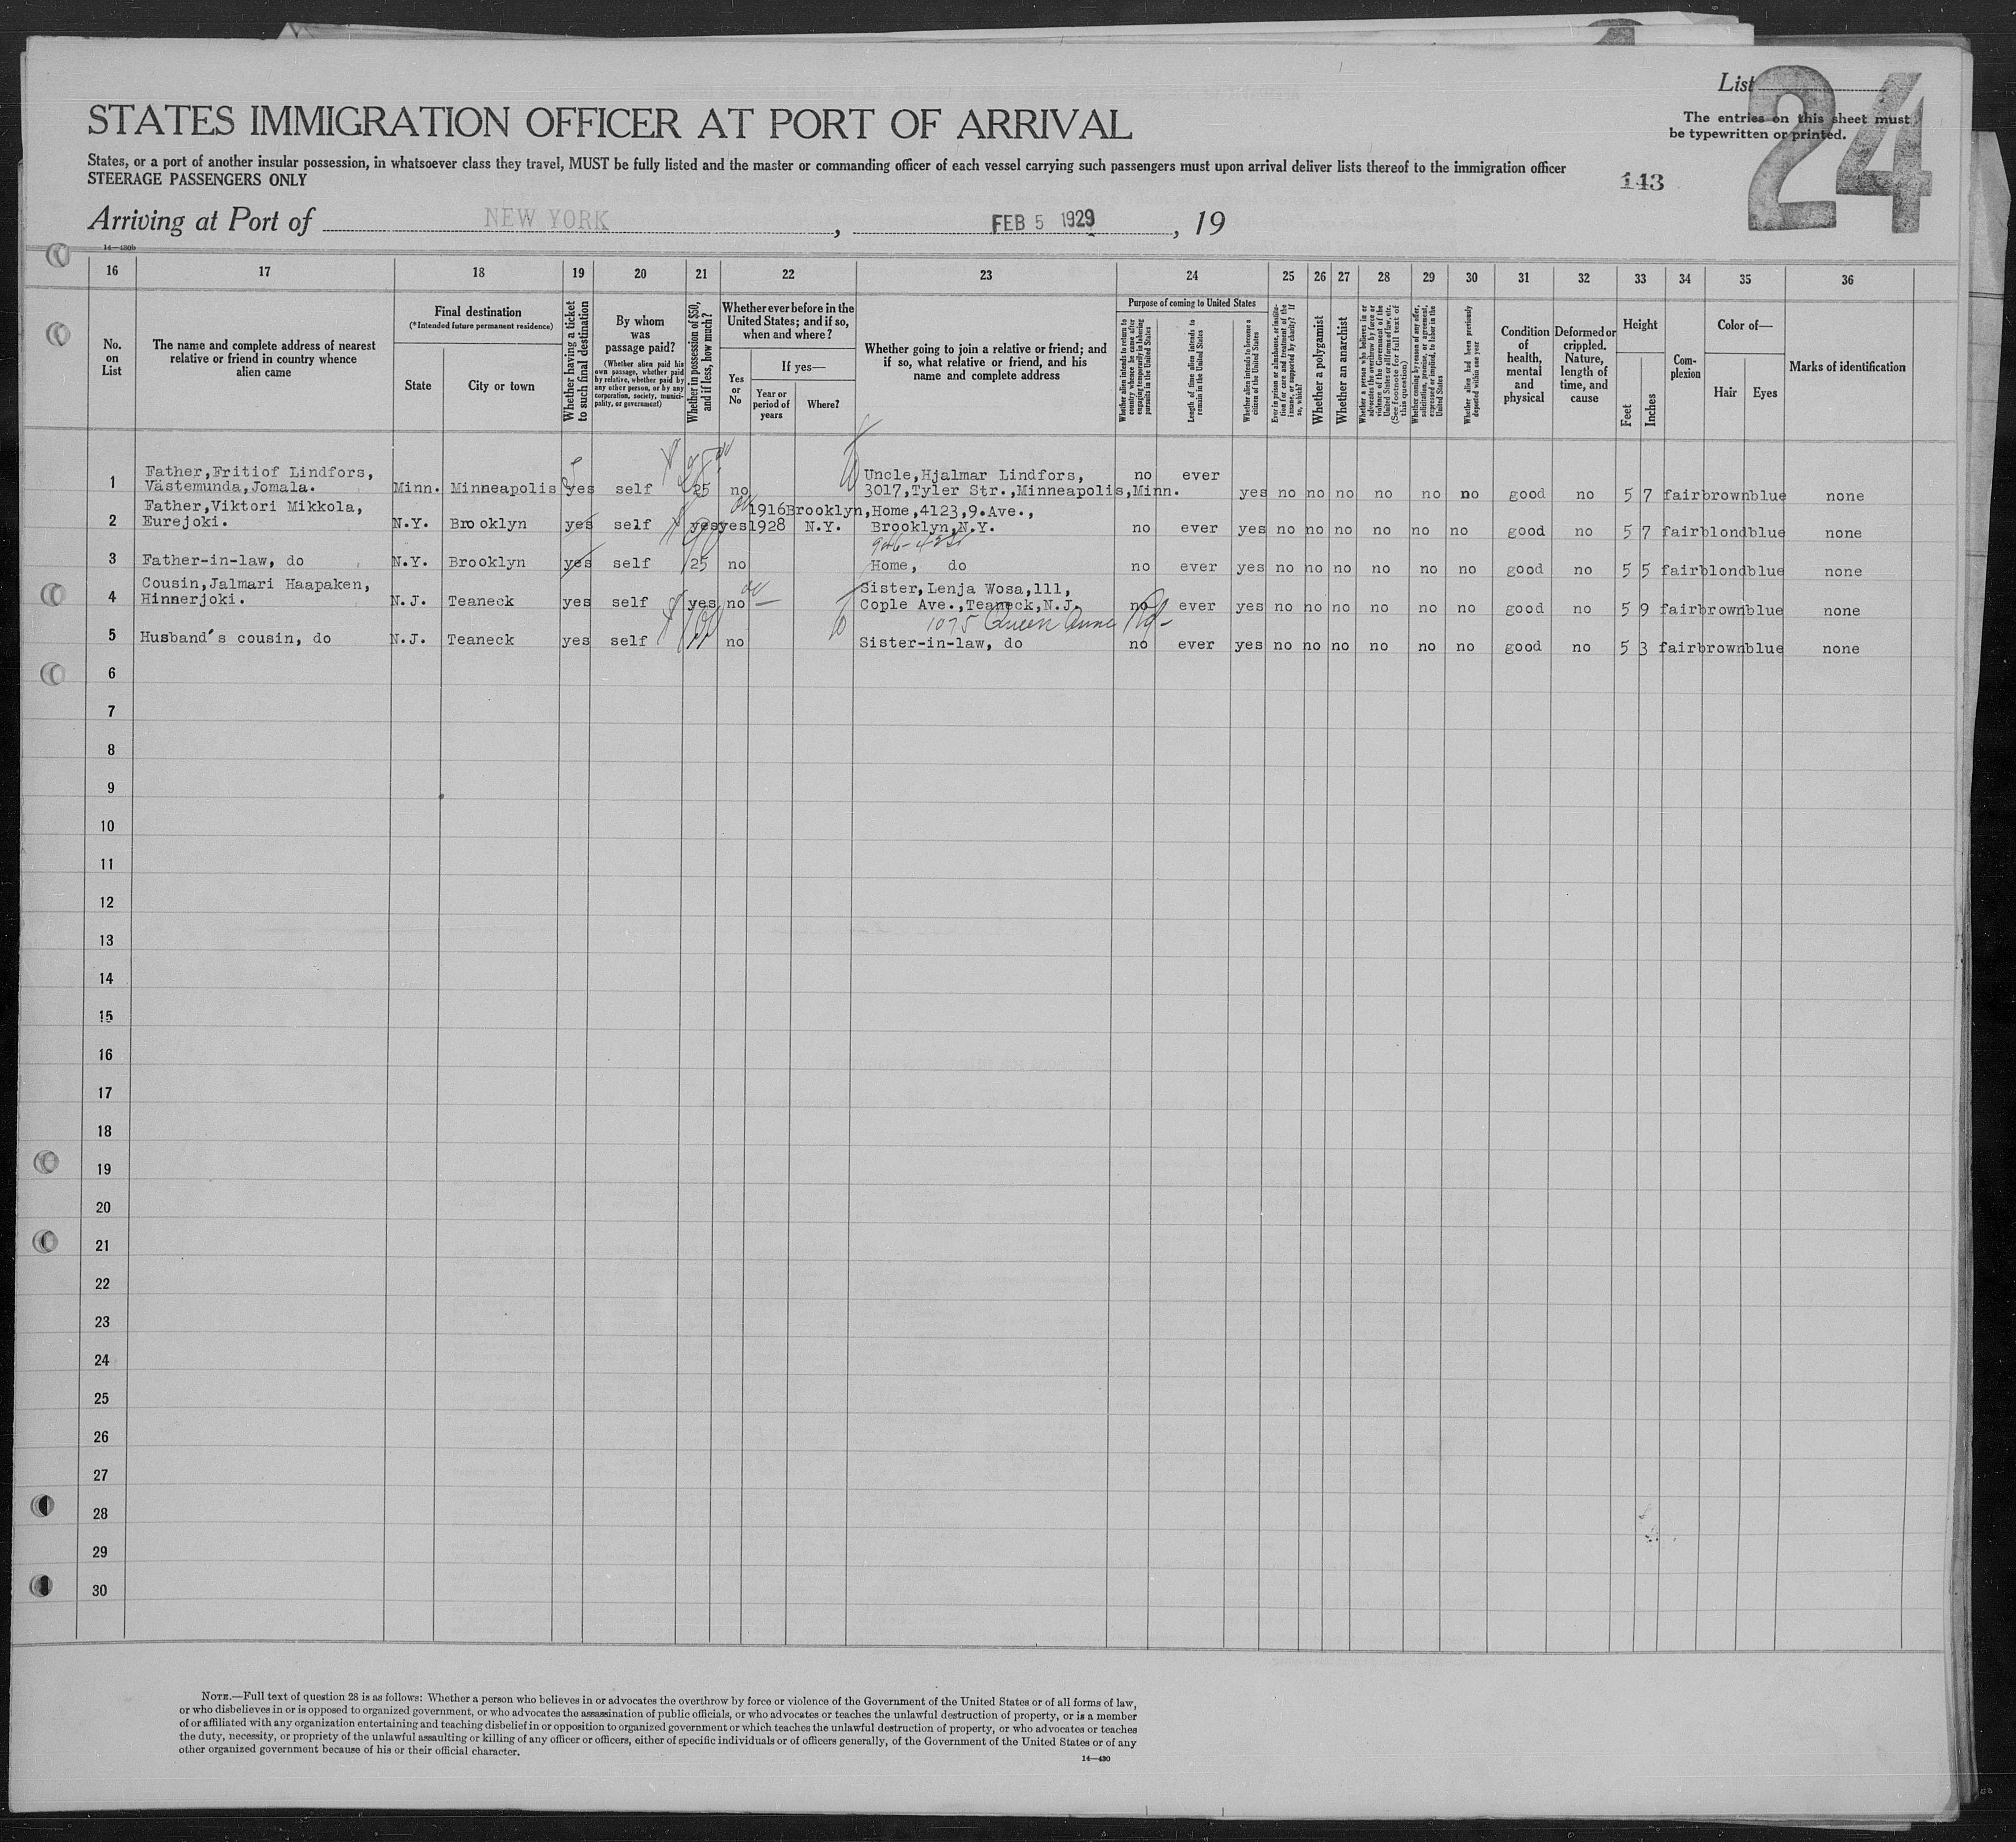 List 24
STATES IMMIGRATION OFFICER AT PORT OF ARRIVAL
The entries on this sheet must
be typewritten or printed.
States, or a port of another insular possession, in whatsoever class they travel, MUST be fully listed and the master or commanding officer of each vessel carrying such passengers must upon arrival deliver lists thereof to the immigration officer
STEERAGE PASSENGERS ONLY
143
Arriving at Port of NEW YORK, FEB 5 1929, 19
14—430b
16 17 18 19 20 21 22 23 24 25 26 27 28 29 30 31 32 33 34 35 36
No.
on
List
The name and complete address of nearest
relative or friend in country whence
alien came
Final destination
(*Intended future permanent residence)
State
City or town
Whether having a ticket
to such final destination
By whom
was
passage paid?
(Whether alien paid his
own passage, whether paid
by relative, whether paid by
any other person, or by any
corporation, society, munici-
pality, or government)
Whether in possession of $50,
and if less, how much?
Whether ever before in the
United States; and if so,
when and where?
Yes
or
No
If yes—
Year or
period of
years
Where?
Whether going to join a relative or friend; and
if so, what relative or friend, and his
name and complete address
Purpose of coming to United States
Whether alien intends to return to
country whence he came after
engaging temporarily in laboring
pursuits in the United States
Length of time alien intends to
remain in the United States
Whether alien intends to become a
citizen of the United States
Ever in prison or almshouse, or institu-
tion for care and treatment of the
insane, or supported by charity? If
so, which?
Whether a polygamist
Whether an anarchist
Whether a person who believes in or
advocates the overthrow by force or
violence of the Government of the
United States or all forms of law, etc.
(See footnote for full text of
this question)
Whether coming by reason of any offer,
solicitation, promise, or agreement,
expressed or implied, to labor in the
United States
Whether alien had been previously
deported within one year
Condition
of
health,
mental
and
physical
Deformed or
crippled.
Nature,
length of
time, and
cause
Height
Feet
Inches
Com-
plexion
Color of—
Hair
Eyes
Marks of identification
1 Father,Fritiof Lindfors, Uncle,Hjalmar Lindfors, no ever
Västemunda,Jomala. Minn. Minneapolis yes self 25 no 3017,Tyler Str.,Minneapolis,Minn. yes no no no no no no good no 5 7 fair brown blue none
2 Father,Viktori Mikkola, 1916 Brooklyn, Home,4123,9.Ave.,
Eurejoki. N.Y. Brooklyn yes self yes yes 1928 N.Y. Brooklyn,N.Y. no ever yes no no no no no no good no 5 7 fair blond blue none
3 Father-in-law, do N.Y. Brooklyn yes self 25 no Home, do no ever yes no no no no no no good no 5 5 fair blond blue none
4 Cousin,Jalmari Haapaken, Sister,Lenja Wosa,111,
Hinnerjoki. N.J. Teaneck yes self yes no Cople Ave.,Teaneck,N.J. no ever yes no no no no no no good no 5 9 fair brown blue none
1075 Queen Anne Rd-
5 Husband's cousin, do N.J. Teaneck yes self no Sister-in-law, do no ever yes no no no no no no good no 5 3 fair brown blue none
6
7
8
9
10
11
12
13
14
15
16
17
18
19
20
21
22
23
24
25
26
27
28
29
30
NOTE.—Full text of question 28 is as follows: Whether a person who believes in or advocates the overthrow by force or violence of the Government of the United States or of all forms of law,
or who disbelieves in or is opposed to organized government, or who advocates the assassination of public officials, or who advocates or teaches the unlawful destruction of property, or is a member
of or affiliated with any organization entertaining and teaching disbelief in or opposition to organized government or which teaches the unlawful destruction of property, or who advocates or teaches
the duty, necessity, or propriety of the unlawful assaulting or killing of any officer or officers, either of specific individuals or of officers generally, of the Government of the United States or of any
other organized government because of his or their official character.
14—430